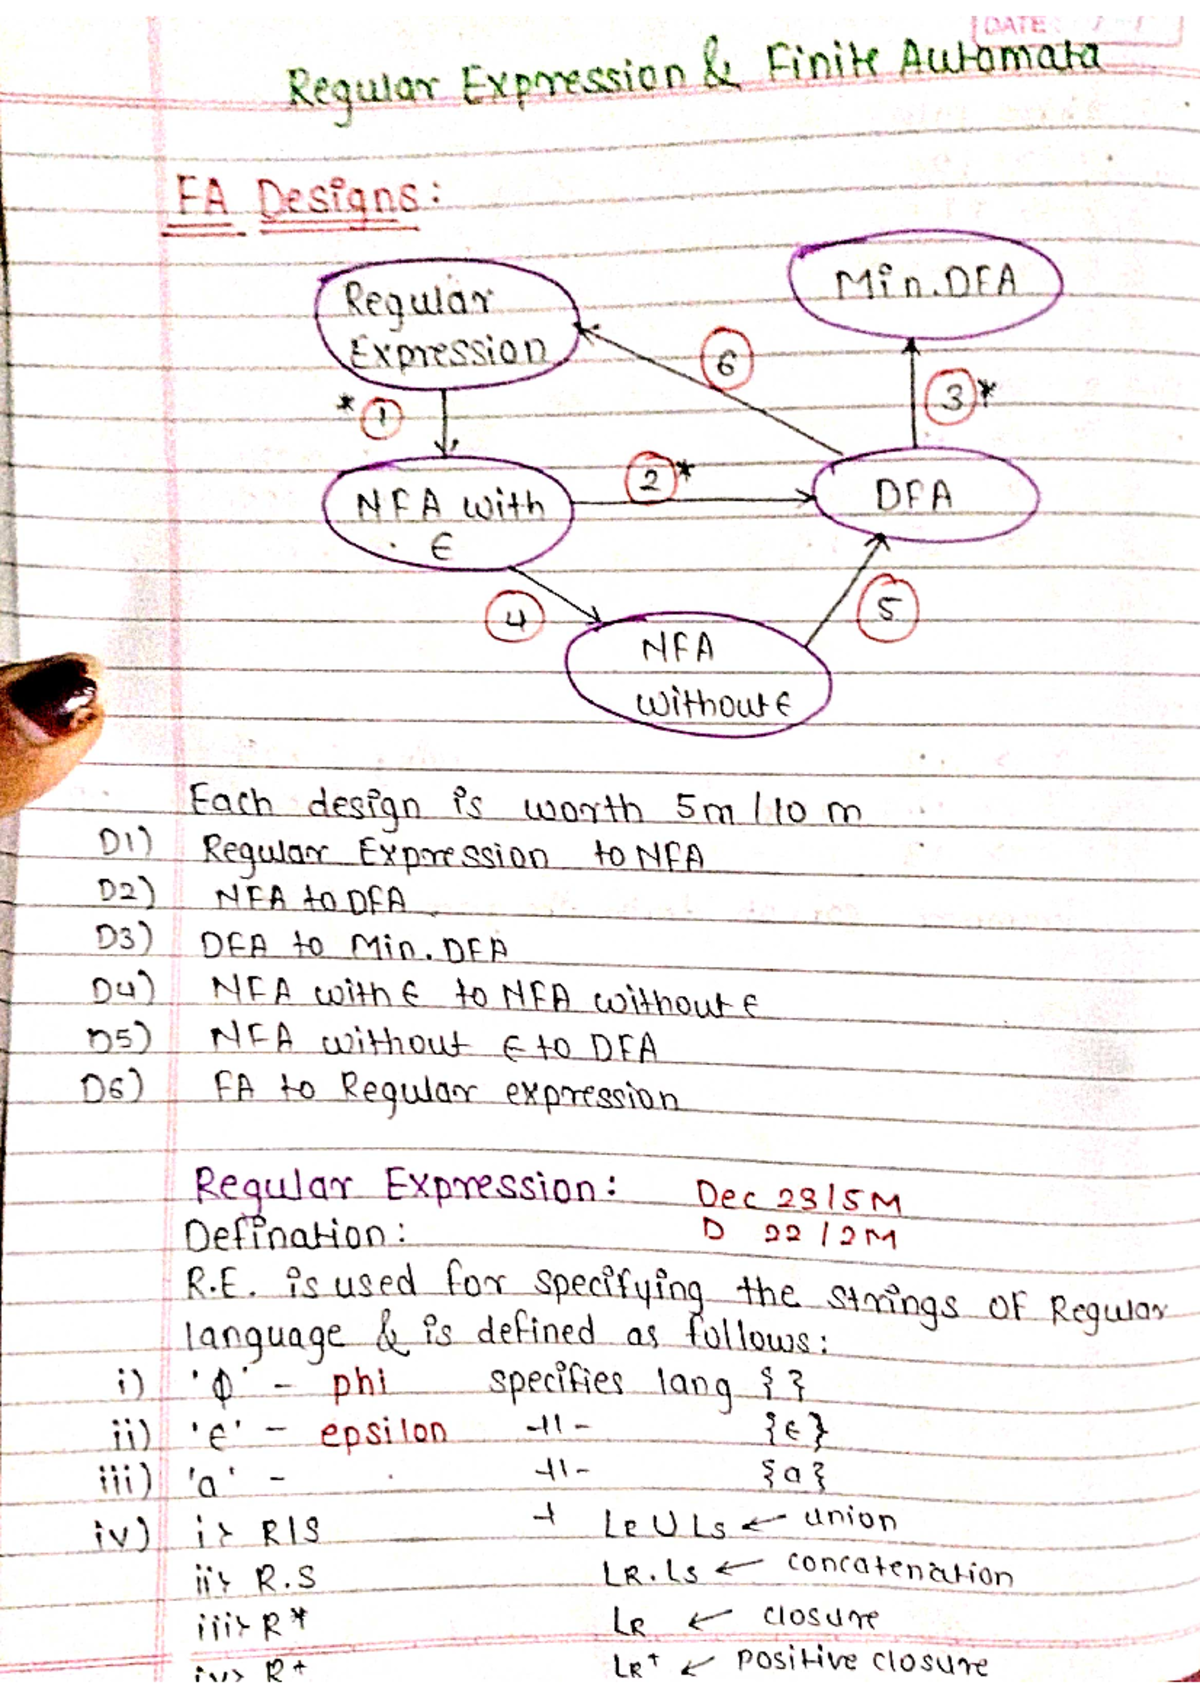 DATE: / /
Regular Expression & Finite Automata
FA Designs:
Regular
Expression
Min.DFA
6
* 1
3 *
NFA with
ϵ
2 *
DFA
4
5
NFA
without ϵ
Each design is worth 5m / 10 m
D1) Regular Expression to NFA
D2) NFA to DFA
D3) DFA to Min. DFA
D4) NFA with ϵ to NFA without ϵ
D5) NFA without ϵ to DFA
D6) FA to Regular expression
Regular Expression: Dec 23/5M
Defination: D 22/2M
R.E. is used for specifying the strings of Regular
language & is defined as follows:
i) 'ϕ' - phi specifies lang { }
ii) 'ϵ' - epsilon -11- {ϵ}
iii) 'a' - -11- {a}
iv) i> R|S LR U LS ← union
ii> R.S LR.LS ← concatenation
iii> R* LR ← closure
iv> R+ LR+ ← positive closure